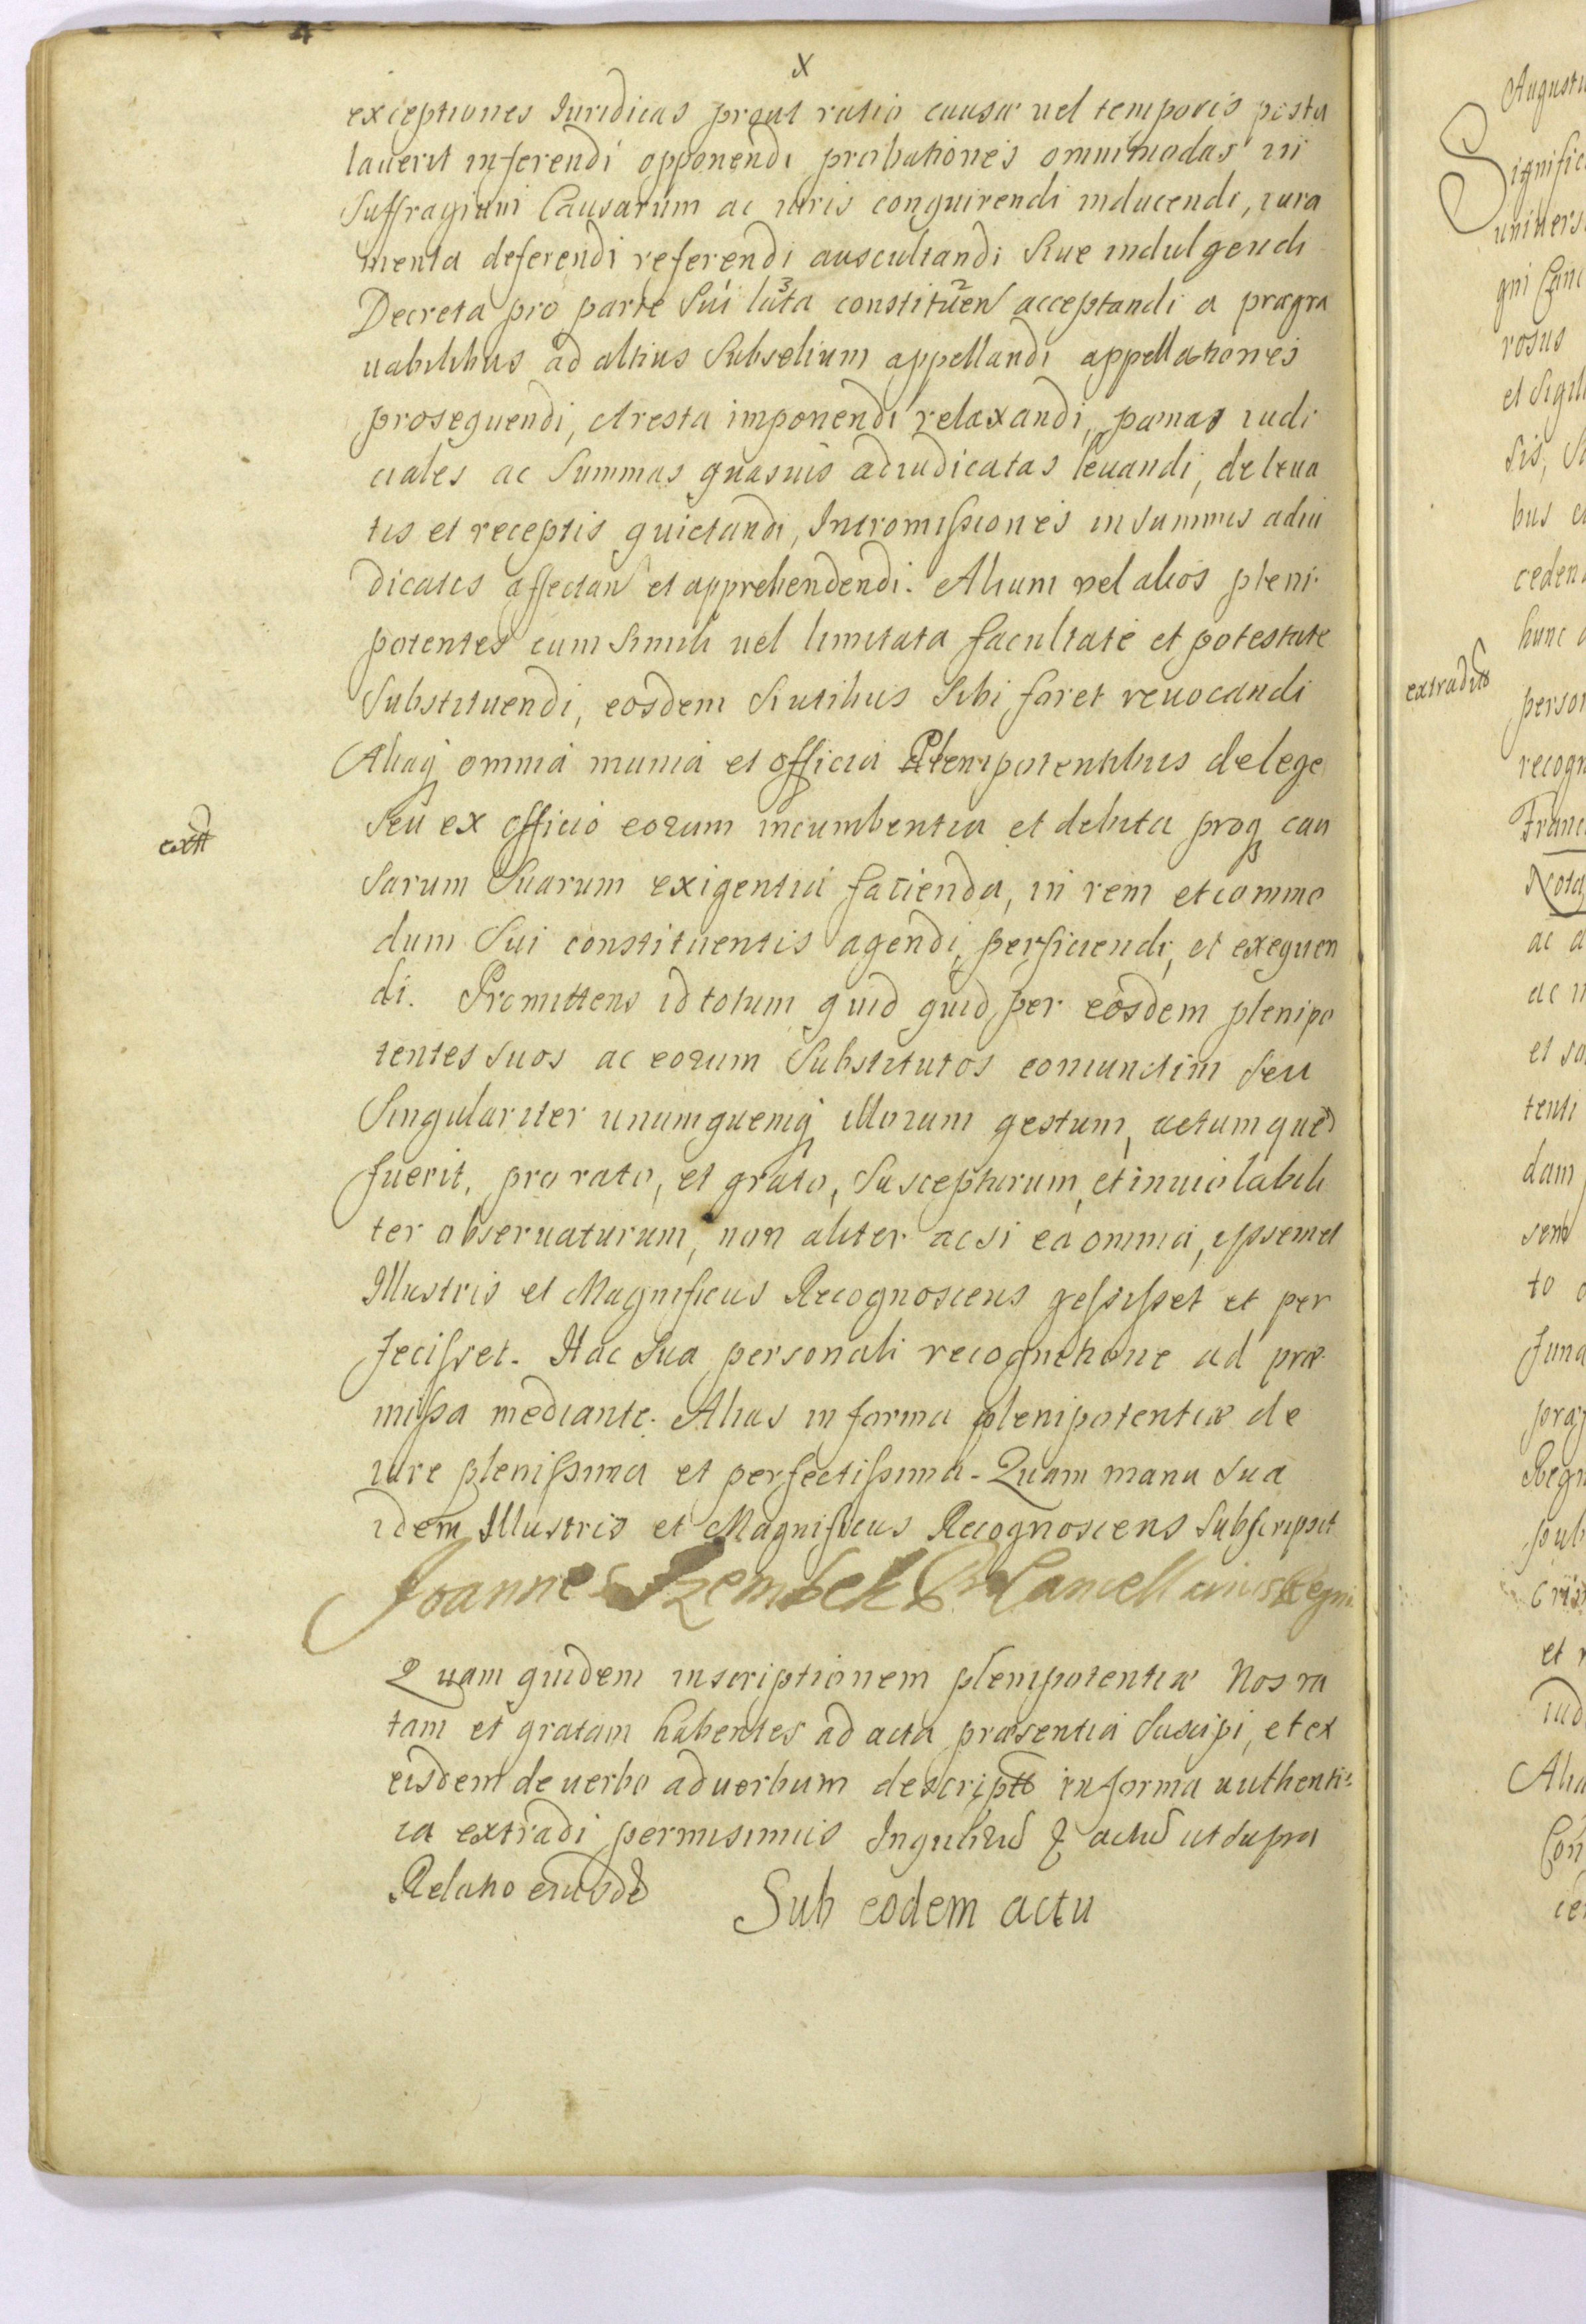 x
exceptiones Iuridicas prout ratio causæ uel temporis postu
lauerit inferendi opponendi probationes omnimodas in
Suffragium Causarum ac iuris conquirendi inducendi, iura
menta deferendi referendi auscultandi Siue indulgendi
Decreta pro parte Sui lata constituen acceptandi a prægra
uabilibus ad altius Subselium appellandi appellationes
prosequendi, Aresta imponendi relaxandi, pœnas iudi
ciales ac Summas quasuis adiudicatas leuandi, de leua
tis et receptis quietandi, Intromissiones in summis adiu
dicatis affectan et apprehendendi. Alium vel alios pleni
potentes cum Simili uel limitata facultate et potestate
Substituendi, eosdem Si utibus Sibi foret reuocandi
Aliaq omnia munia et officia Plenipotentibus de lege
Seu ex officio eorum incumbentia et debita proq cau
sarum Suarum exigentia facienda, in rem et commo
dum Sui constituentis agendi, perficiendi, et exequen
di. Promittens id totum quid quid per eosdem plenipo
tentes suos ac eorum Substitutos coniunctim Seu
Singulariter unumquemq illorum gestum, actumque
fuerit, pro rato, et grato, Suscepturum, et inuiolabili
ter obseruaturum, non aliter ac si ea omnia, ipsemet
Illustris et Magnificus Recognoscens gessisset et per
fecisset. Hac Sua personali recognitione ad præ
missa mediante. Alias in forma plenipotentiæ de
iure plenissima et perfectissima. Quam manu Sua
idem Illustris et Magnificus Recognoscens Subscripsit
Joannes Szembek Pro Cancellarius Regni
Quam quidem inscriptionem plenipotentiæ Nos ra
tam et gratam habentes ad acta præsentia Suscipi, et ex
eisdem de uerbo ad uerbum descriptt in forma authenti
ca extradi permisimus ut supra
Relatio eiusdē
Sub eodem actu
extt
extradit